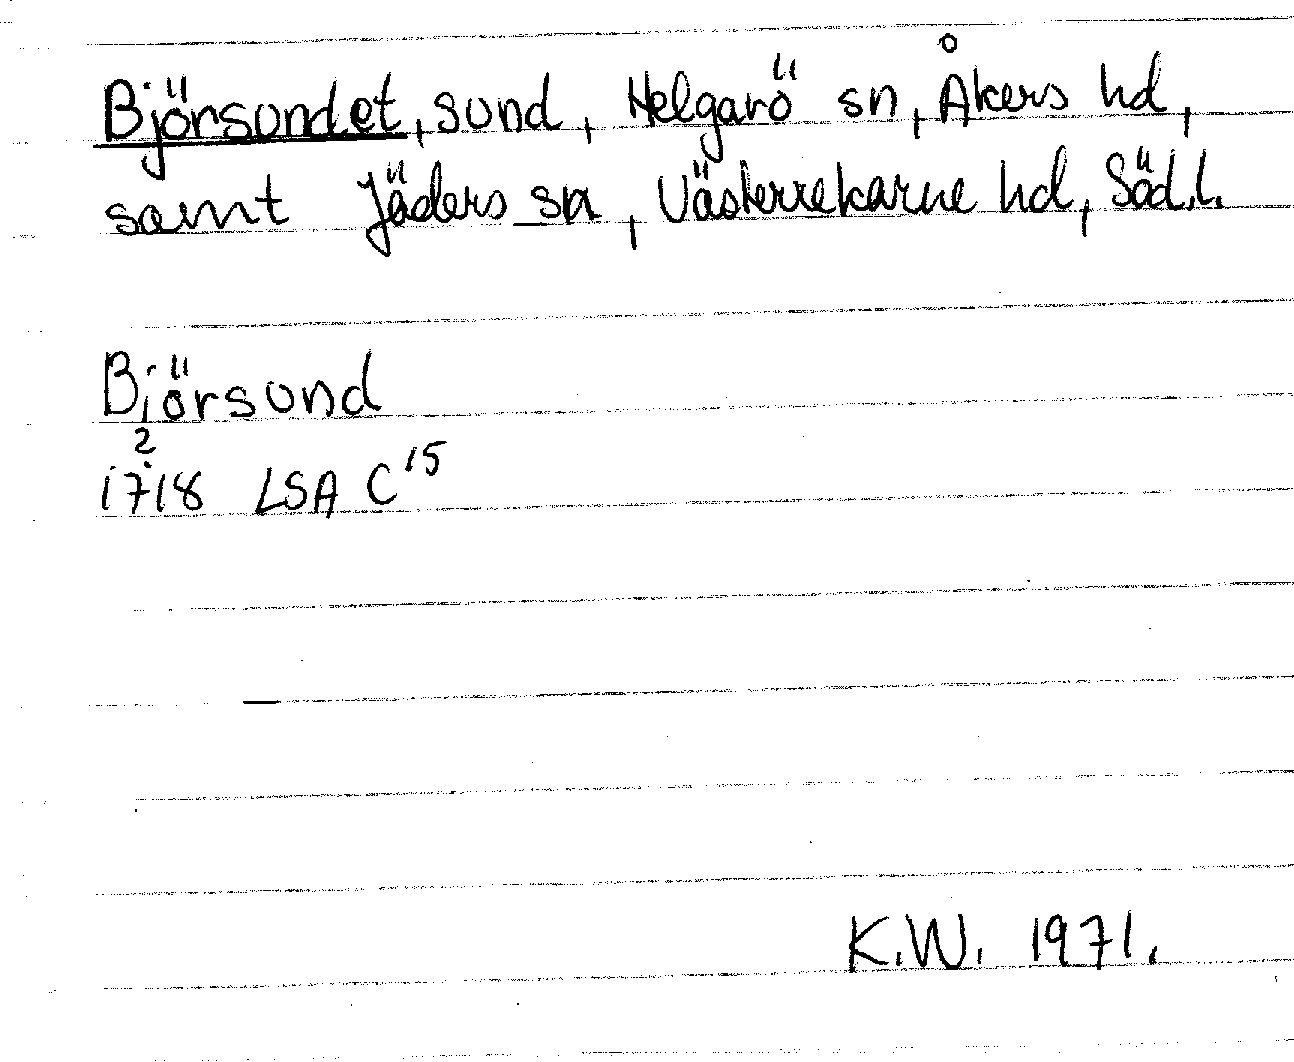 Björsundet, sund, Helgarö sn, Åkers hd,
samt Jäders sn, Västerrekarne hd, Söd.l.
Biörsund
2
1718 LSA C 15
K.W. 1971.